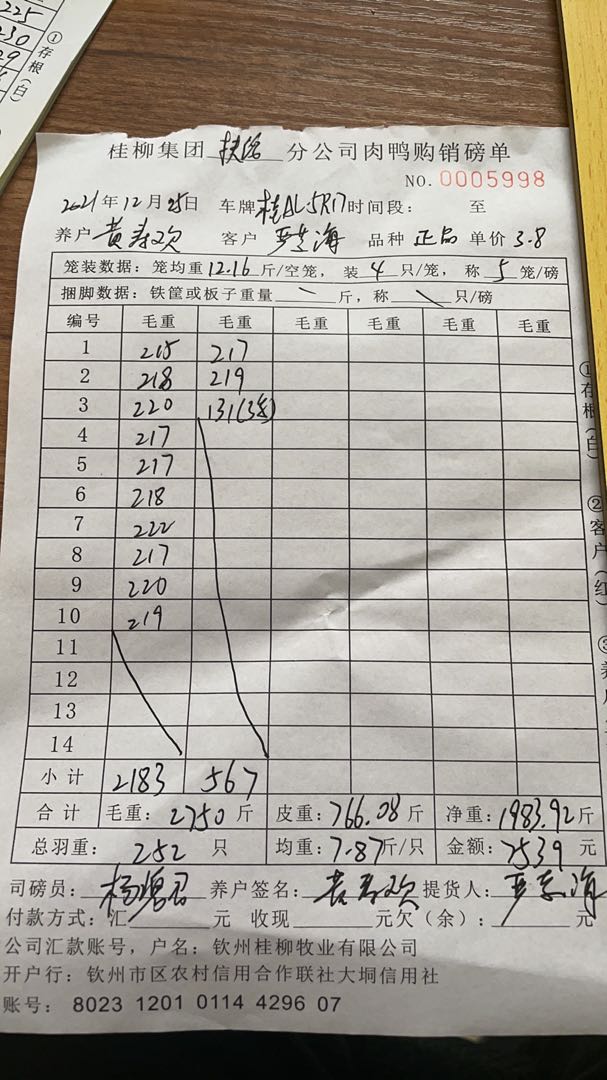 225
230
29
①存根(白)
桂柳集团 分公司肉鸭购销磅单
NO. 0005998
2021年12月25日 车牌 桂AL5R17 时间段: 至
养户 黄寿欢 客户 海 品种 正品 单价 3.8
笼装数据: 笼均重 12.16 斤/空笼, 装 4 只/笼, 称 5 笼/磅
捆脚数据: 铁筐或板子重量 \ 斤, 称 \ 只/磅
编号 毛重 毛重 毛重 毛重 毛重 毛重
1 215 217
2 218 219
3 220 131(3笼)
4 217
5 217
6 218
7 222
8 217
9 220
10 219
11
12
13
14
小计 2183 567
合计 毛重: 2750 斤 皮重: 766.08 斤 净重: 1983.92 斤
总羽重: 252 只 均重: 7.87 斤/只 金额: 7539 元
司磅员: 杨 君 养户签名: 黄寿欢 提货人: 海
付款方式: 汇 元 收现 元 欠(余): 元
公司汇款账号, 户名: 钦州桂柳牧业有限公司
开户行: 钦州市区农村信用合作联社大垌信用社
账号: 8023 1201 0114 4296 07
①存根(白)
②客户(红)
③养户